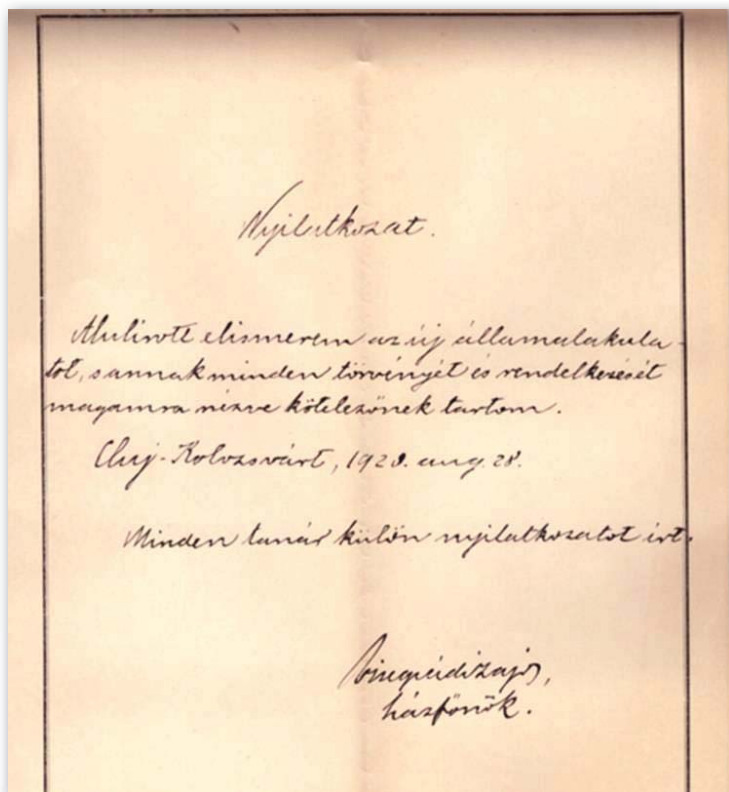 Nyilatkozat.
Alulirott elismerem az új államalakula-
tot, s annak minden törvényét és rendelkezését
magamra nézve kötelezőnek tartom.
Cluj-Kolozsvárt, 1920. aug. 28.
Minden tanár külön nyilatkozatot írt.
házfőnök.